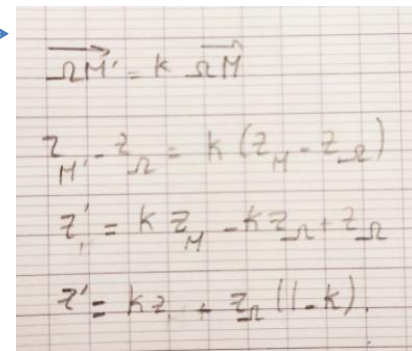 ΩM' = k ΩM
z_M' - z_Ω = k (z_M - z_Ω)
z' = k z_M - k z_Ω + z_Ω
z' = k z + z_Ω (1 - k).